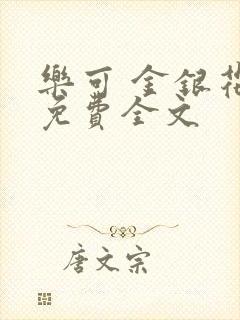 樂可 金銀花
免費全文
唐文宗